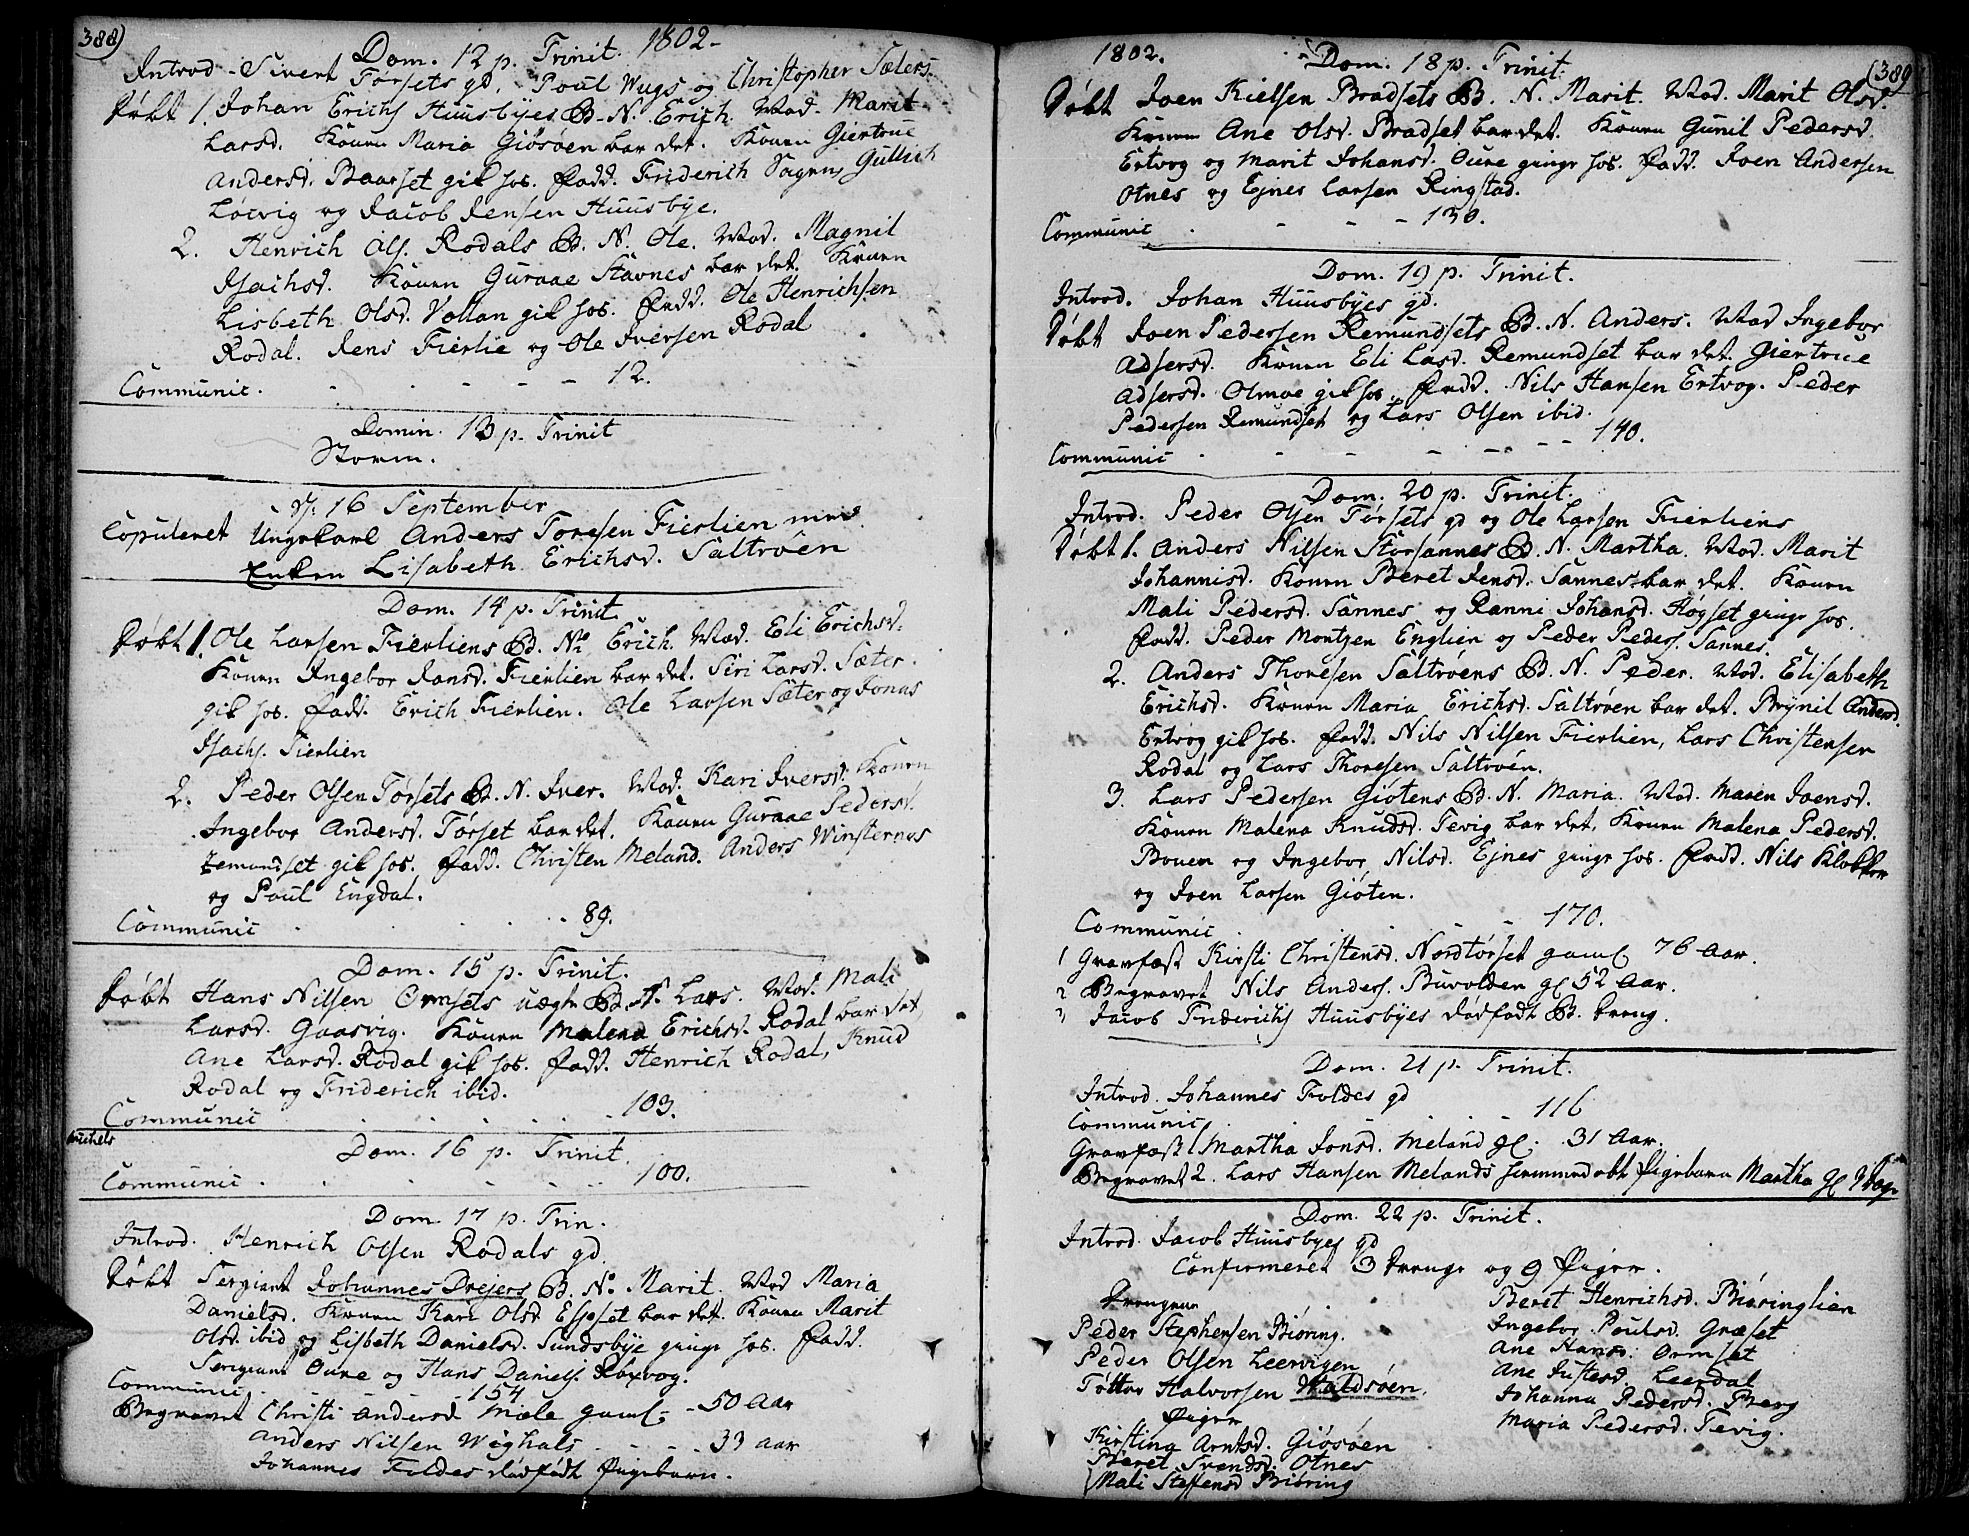 388)
Dom. 12 p. Trinit. 1802.
Introd. Sivert Torsets gd. Poul Wugs og Christopher Sæters.
Døbt 1. Johan Erichs Huusbyes B. N. Erich. Mod. Marit
Larsd. Konen Maria Giøsøen bar det. Konen Giertrue
Andersd. Baarset gik hos. Fadd. Friderich Sagen, Gullich
Løevig og Jacob Jensen Huusbye.
2. Henrich Ols. Rodals B. N. Ole. Mod. Magnil
Isachsd. Konen Guraae Stavnes bar det. Konen
Lisbeth Olsd. Vollan gik hos. Fadd. Ole Henrichsen
Rodal. Jens Fierlie og Ole Iversen Rodal
Communic. - - - - - 12.
Domin. 13 p. Trinit
Storm.
D. 16 September
Copuleret Ungekarl Anders Toresen Fierlien med
Enken Lisabeth Erichsd. Saltrøen
Dom. 14 p. Trinit.
Døbt 1. Ole Larsen Fierliens B. No. Erich. Mod. Eli Erichsd.
Konen Ingebor Jensd. Fierlien bar det. Siri Larsd. Sæter.
gik hos. Fadd. Erich Fierlien. Ole Larsen Sæter og Jonas
Isachs. Fierlien
2. Peder Olsen Torsets B. N. Iver. Mod. Kari Iversd. Konen
Ingebor Andersd. Torset bar det. Konen Guraae Pedersd.
Remundset gik hos. Fadd. Christen Meland. Anders Winsternes
og Poul Engdal.
Communic . . . . . 89.
Dom. 15 p. Trinit.
Døbt Hans Nilsen Ormsets uægte B. N. Lars. Mod. Mali
Larsd. Gaasvig. Konen Malena Erichsd. Rodal bar det
Ane Larsd. Rodal gik hos. Fadd. Henrich Rodal, Knud
Rodal og Friderich ibid.
Communic . . . . . 103.
Michels
Dom. 16 p. Trinit.
Communic . . . . . 100.
Dom. 17 p. Trin.
Introd. Henrich Olsen Rodals gd.
Døbt Sergiant Johannes Drejers B. No. Marit. Mod Maria
Danielsd. Konen Kari Olsd. Espset bar det. Konen Marit
Olsd. ibid og Lisbeth Danielsd. Sundsbye ginge hos. Fadd.
Sergiant Oure og Hans Daniels. Roxvog.
Communic . 154
Begravet Christi Andersd. Mæle gaml - 50 Aar
Anders Nilsen Wighals . - - - 33 Aar
Johannes Foldes dødfødt Pigebarn.
1802. Dom. 18 p. Trinit. (389
Døbt Joen Kielsen Bradsets B. N. Marit. Mod. Marit Olsd.
Konen Ane Olsd. Bradset bar det. Konen Gunil Pedersd.
Ertvog og Marit Johansd. Oure ginge hos. Fadd. Joen Andersen
Otnes og Ejnes Larsen Ringstad.
Communic . - - - 130.
Dom. 19 p. Trinit.
Introd. Johan Huusbyes gd.
Døbt Joen Pedersen Remundsets B. N. Anders. Mod Ingebor
Adsersd. Konen Eli Lasd. Remundset bar det. Giertrue
Adsersd. Olmoe gik hos. Fadd. Nils Hansen Ertvog. Peder
Pedersen Remundset og Lars Olsen ibid.
Communic . - - - - - 140.
Dom. 20 p. Trinit.
Introd. Peder Olsen Torsets gd og Ole Larsen Fierliens
Døbt 1. Anders Nilsen Storsannes B. N. Martha. Mod. Marit
Johannisd. Konen Beret Jensd. Sannes bar det. Konen
Mali Pedersd. Sannes og Ranni Johansd. Høgset ginge hos.
Fadd. Peder Montzen Englien og Peder Peders. Sannes.
2. Anders Thoresen Saltrøens B. N. Peder. Mod. Elisabeth
Erichsd. Konen Maria Erichsd. Saltrøen bar det. Brynil Andersd.
Ertvog gik hos. Fadd. Nils Nilsen Fierlien, Lars Christensen
Rodal og Lars Thoresen Saltrøen.
3. Lars Pedersen Giøtens B. N. Maria. Mod. Maren Joensd.
Konen Malena Knudsd. Tevig bar det, Konen Malena Pedersd.
Bouen og Ingebor Nilsd. Ejnes ginge hos. Fadd. Nils Klokker
og Joen Larsen Giøten.
Communic . - - 170.
1 Gravfæst Kirsti Christensd. Nordtorset gaml 76 Aar.
2 Begravet Nils Anders. Buvolden gl 52 Aar.
3) Jacob Friderichs Huusbyes dødfødt B. Dreng.
Dom. 21 p. Trinit.
Introd. Johannes Foldes gd
Communic . . . - 116
Gravfæst 1 Martha Jonsd. Meland gl. 31 Aar.
Begravet 2. Lars Hansen Melands hiemmedøbt Pigebarn Martha gl 9 Dage
Dom. 22 p. Trinit.
Introd. Jacob Huusbyes gd
Confirmeret 3 Drenge og 9 Piger.
Drengene
Peder Stephensen Biøring.
Peder Olsen Leervigen
Tøttor Halvorsen Waldsøen.
Piger
Kirstina Arntsd. Giøsøen
Beret Svendsd. Otnes
Mali Stefensd Biøring
Beret Henrichsd. Biøringlien
Ingebor Poulsd. Græset
Ane Hansd. Ormset
Ane Justesd. Leerdal
Johanna Pedersd. Berg
Maria Pedersd. Tevig.